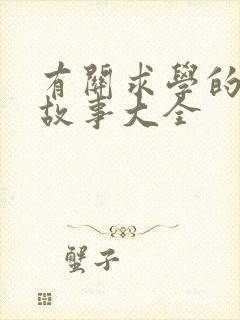 有關求學的
故事大全
蟹子